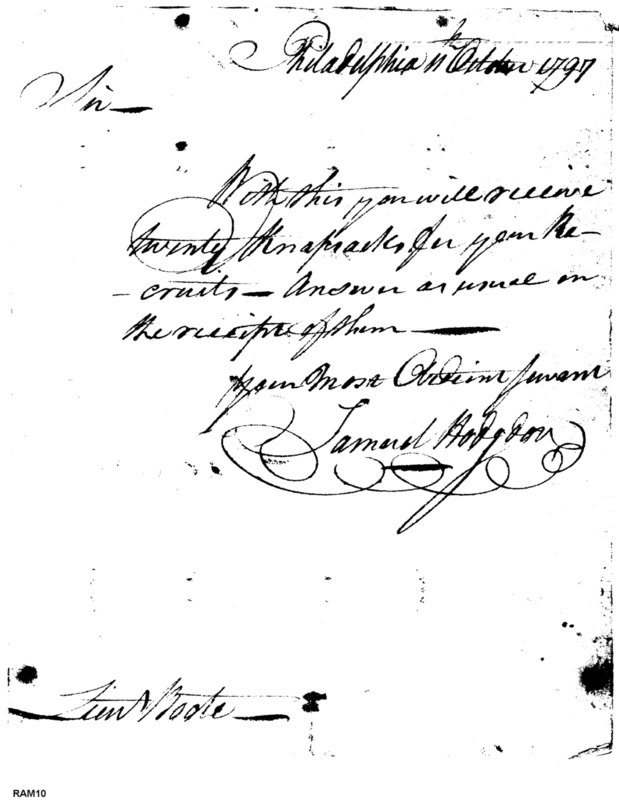 Philadelphia 11th October 1797
Sir —
With this you will receive
twenty Knapsacks for your Re-
- cruits — Answer as usual on
the receipt of them —
Your Most Obedient Servant
Samuel Hodgdon
Lieut Boote —
RAM10